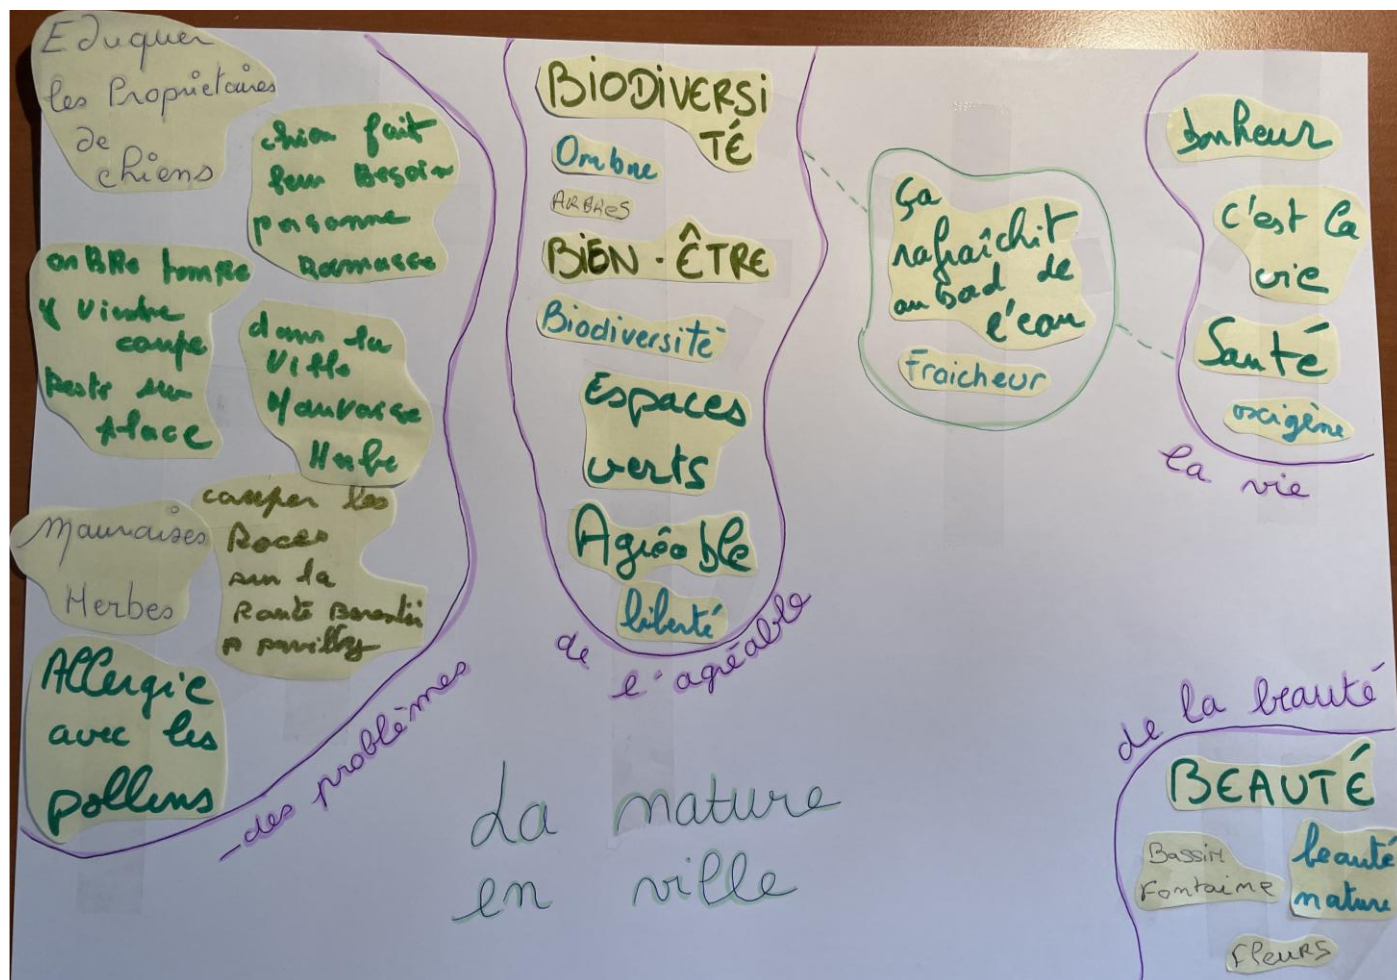 Eduquer
les Propriétaires
de
chiens
chien fait
leur Besoin
personne
Ramasse
arBRe tompe
coupe
Reste sur
place
dans la
Ville
Mauvaise
Herbe
Mauvaises
Herbes
couper les
Roces
sur la
Route Barentin
pavilly
Allergie
avec les
pollens
des problèmes
BIODIVERSI
TÉ
Ombre
ARBRES
BIEN-ÊTRE
Biodiversité
Espaces
verts
Agréable
liberté
de l'agréable
ça
rafraîchit
au bad de
l'eau
Fraicheur
bonheur
c'est la
vie
Santé
oxigène
la vie
La nature
en ville
de la beauté
BEAUTÉ
Bassin
Fontaine
beauté
nature
Fleurs